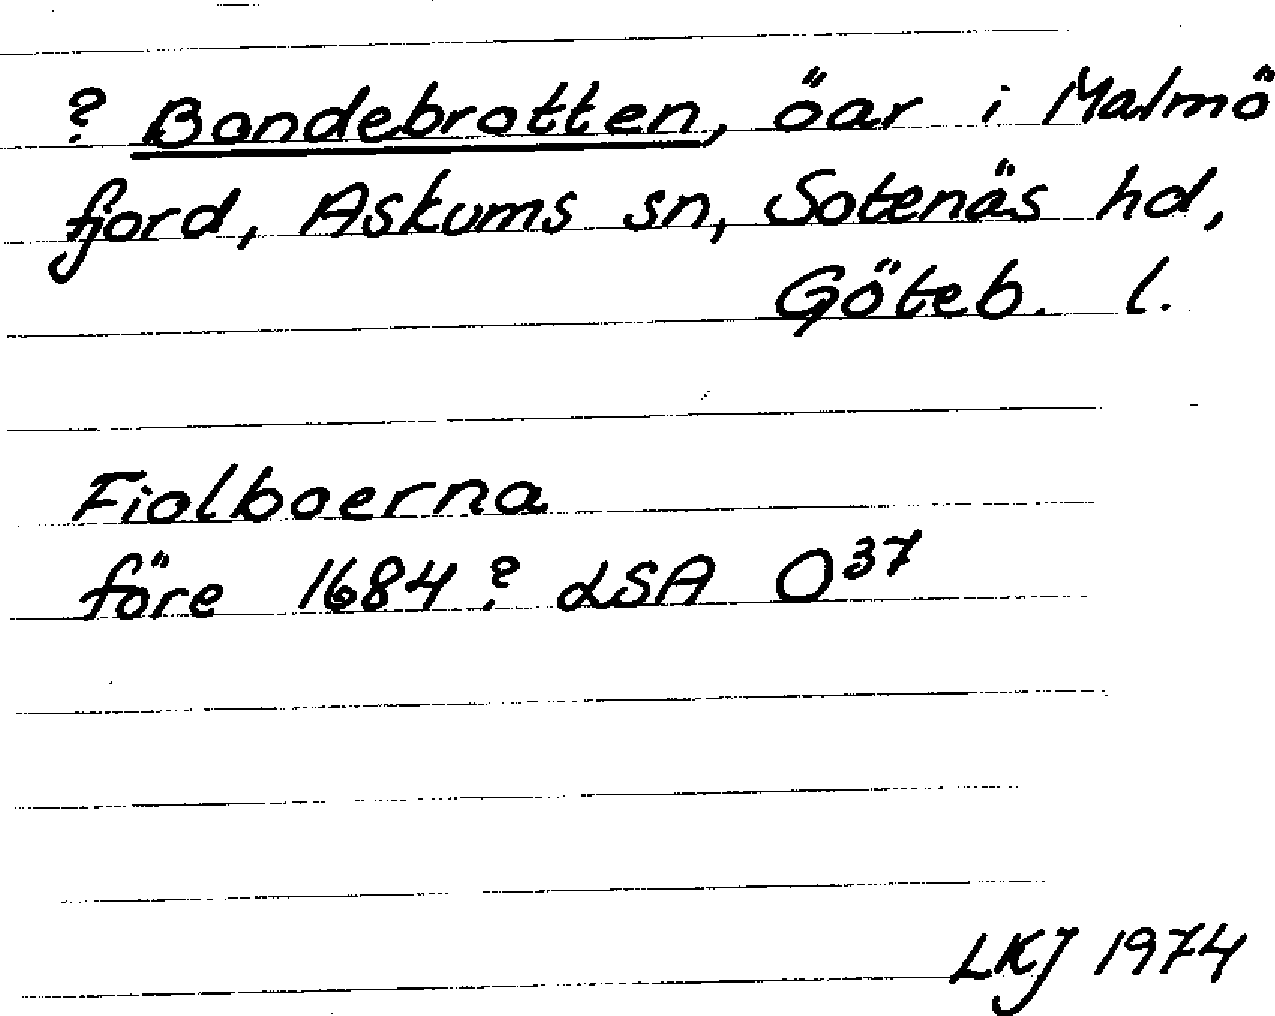 ? Bondebrotten, öar i Malmö
fjord, Askums sn, Sotenäs hd,
Göteb. l.
Fiolboerna
före 1684? LSA O37
LKJ 1974